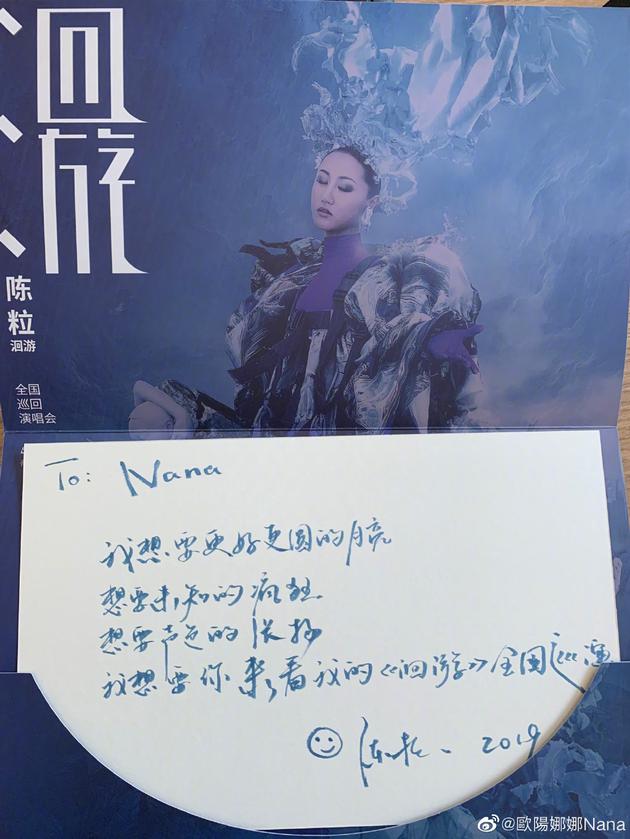 洄
游
陈
粒
洄游
全国
巡回
演唱会
To: Nana
我想要更好更圆的月亮
想要未知的疯狂
想要声色的张扬
我想要你来看我的《洄游》全国巡演
陈粒 2019
@歐陽娜娜Nana